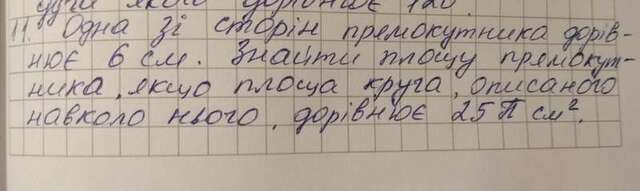 дуги якого дорівнює 120
11. Одна зі сторін прямокутника дорів-
нює 6 см. Знайти площу прямокут-
ника, якщо площа круга, описаного
навколо нього, дорівнює 25π см².